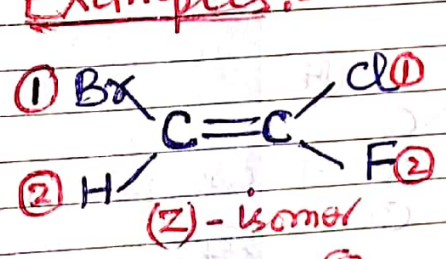 Examples:
① Br Cl ①
C=C
② H F ②
(Z)-isomer